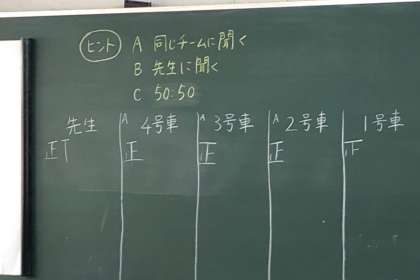 ヒント A 同じチームに聞く
B 先生に聞く
C 50:50
先生 A 4号車 A 3号車 A 2号車 1号車
正丅 正 正 正 正